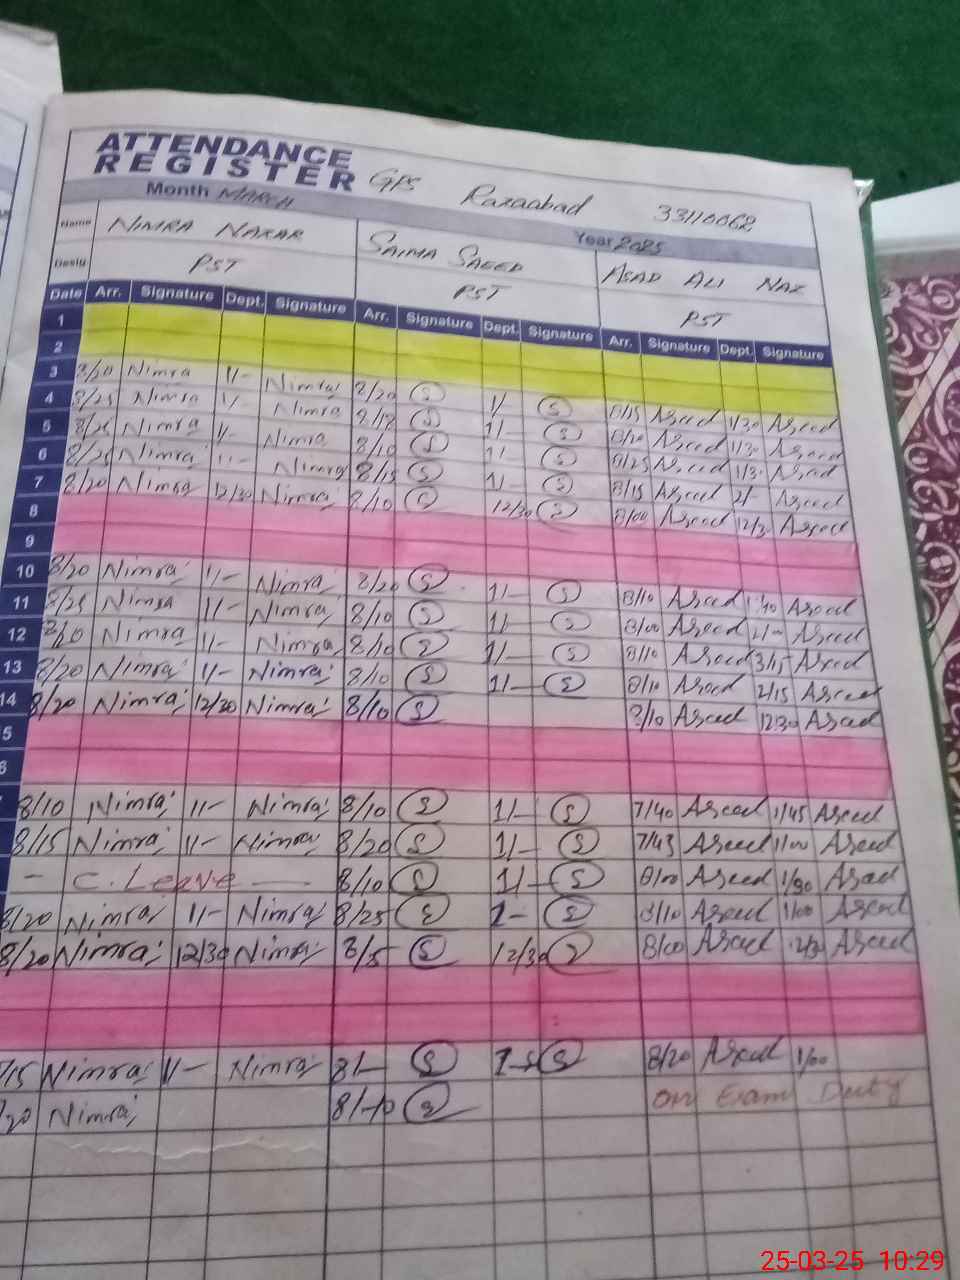 ATTENDANCE
REGISTER GPS Razaabad 33110062
Month MARCH Year 2025
Name NIMRA NAZAR SAIMA SAEED ASAD ALI NAZ
Desig PST PST PST
Date Arr. Signature Dept. Signature Arr. Signature Dept. Signature Arr. Signature Dept. Signature
1
2
3 8/20 Nimra 1/- Nimra 8/20 S 1/- S 8/15 Asad 1/30 Asad
4 8/25 Nimra 1/- Nimra 8/18 S 1/- S 8/20 Asad 1/30 Asad
5 8/25 Nimra 1/- Nimra 8/10 S 1/ S 8/25 Asad 1/3 Asad
6 8/25 Nimra 1/- Nimra 8/15 S 1/- S 8/15 Asad 2/- Asad
7 8/20 Nimra 12/30 Nimra 8/10 S 12/30 S 8/00 Asad 12/3 Asad
8
9
10 8/20 Nimra 1/- Nimra 8/20 S 1/- S 8/10 Asad Asad
11 8/25 Nimra 1/- Nimra 8/10 S 1/- S 8/00 Asad 2/00 Asad
12 8/20 Nimra 1/- Nimra 8/10 S 1/- S 8/10 Asad 3/15 Asad
13 8/20 Nimra 1/- Nimra 8/10 S 1/- S 8/10 Asad 2/15 Asad
14 8/20 Nimra 12/30 Nimra 8/10 S 8/10 Asad 12:30 Asad
5
6
8/10 Nimra 1/- Nimra 8/10 S 1/- S 7/40 Asad 1/45 Asad
8/15 Nimra 1/- Nimra 8/20 S 1/- S 7/43 Asad 1/00 Asad
- C. Leave - 8/10 S 1/- S 8/00 Asad 1/30 Asad
8/20 Nimra 1/- Nimra 8/25 S 1- S 8/10 Asad 1/00 Asad
8/20 Nimra 12/30 Nimra 8/5 S 12/30 S 8/00 Asad 12/3 Asad
/15 Nimra 1/- Nimra 8/- S S 8/20 Asad 1/00
/20 Nimra 8/-10 S On Exam Duty
25-03-25 10:29